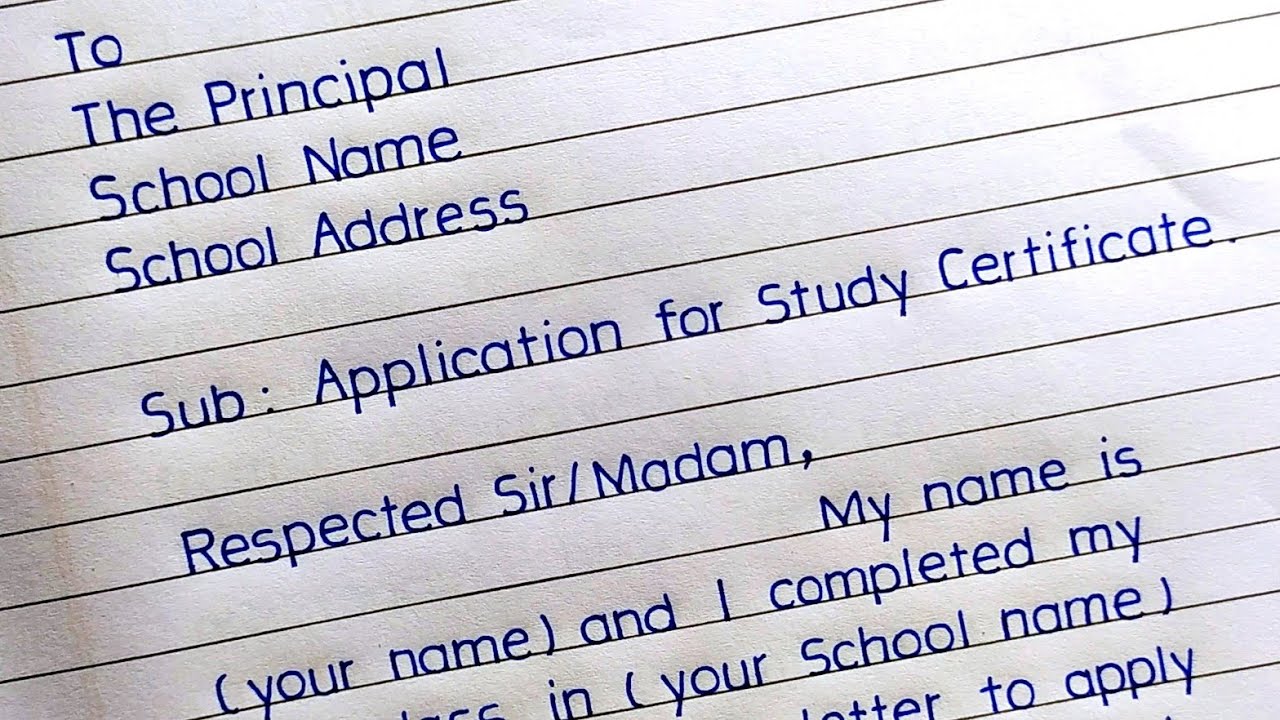 To
The Principal
School Name
School Address
Sub: Application for Study Certificate.
Respected Sir/Madam,
My name is
(your name) and I completed my
in (your School name)
to apply